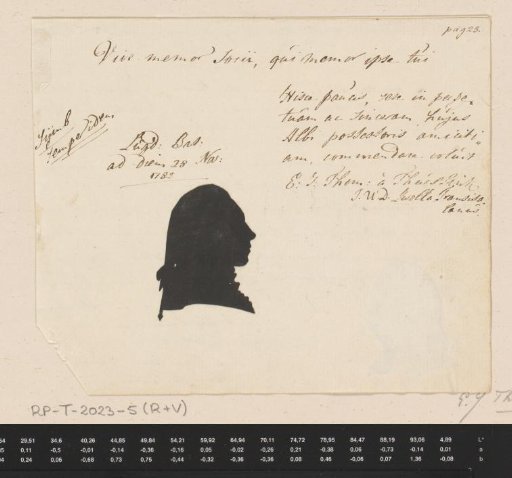 pag 28.
Vive memor Socii, qui memor ipse tui
Hisce paucis, sese in perpe-
tuam ac sinceram, hujus
Albi possessoris amiciti-
am, commendare voluit
E. J. Thom: à Thuessink
J. U. D. Transisa-
lanus.
Symb
semper idem
Lugd: Bat:
ad diem 28 Nov:
1782
RP-T-2023-5 (R+V)
E. J Th
54 29,51 34,6 40,26 44,85 49,84 54,21 59,92 64,94 70,11 74,72 78,95 84,47 88,19 93,06 4,89 L*
0,11 -0,5 -0,01 -0,14 -0,36 -0,16 0,05 -0,02 -0,26 0,21 -0,38 0,06 -0,73 -0,14 0,01 a
0,24 0,06 -0,68 0,73 0,76 -0,44 -0,32 -0,36 -0,36 0,08 0,46 -0,06 0,07 1,36 -0,08 b